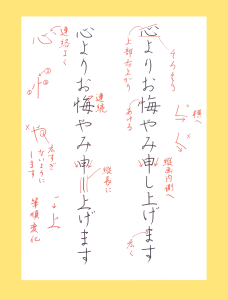 心よりお悔やみ申し上げます
心よりお悔やみ申し上げます
そりより
上部右上がり
あける
横へ
縦画内側へ
広く
連続
縦長に
連絡よく
心
忄
や
広すぎ
ないように
します
上
筆順変化